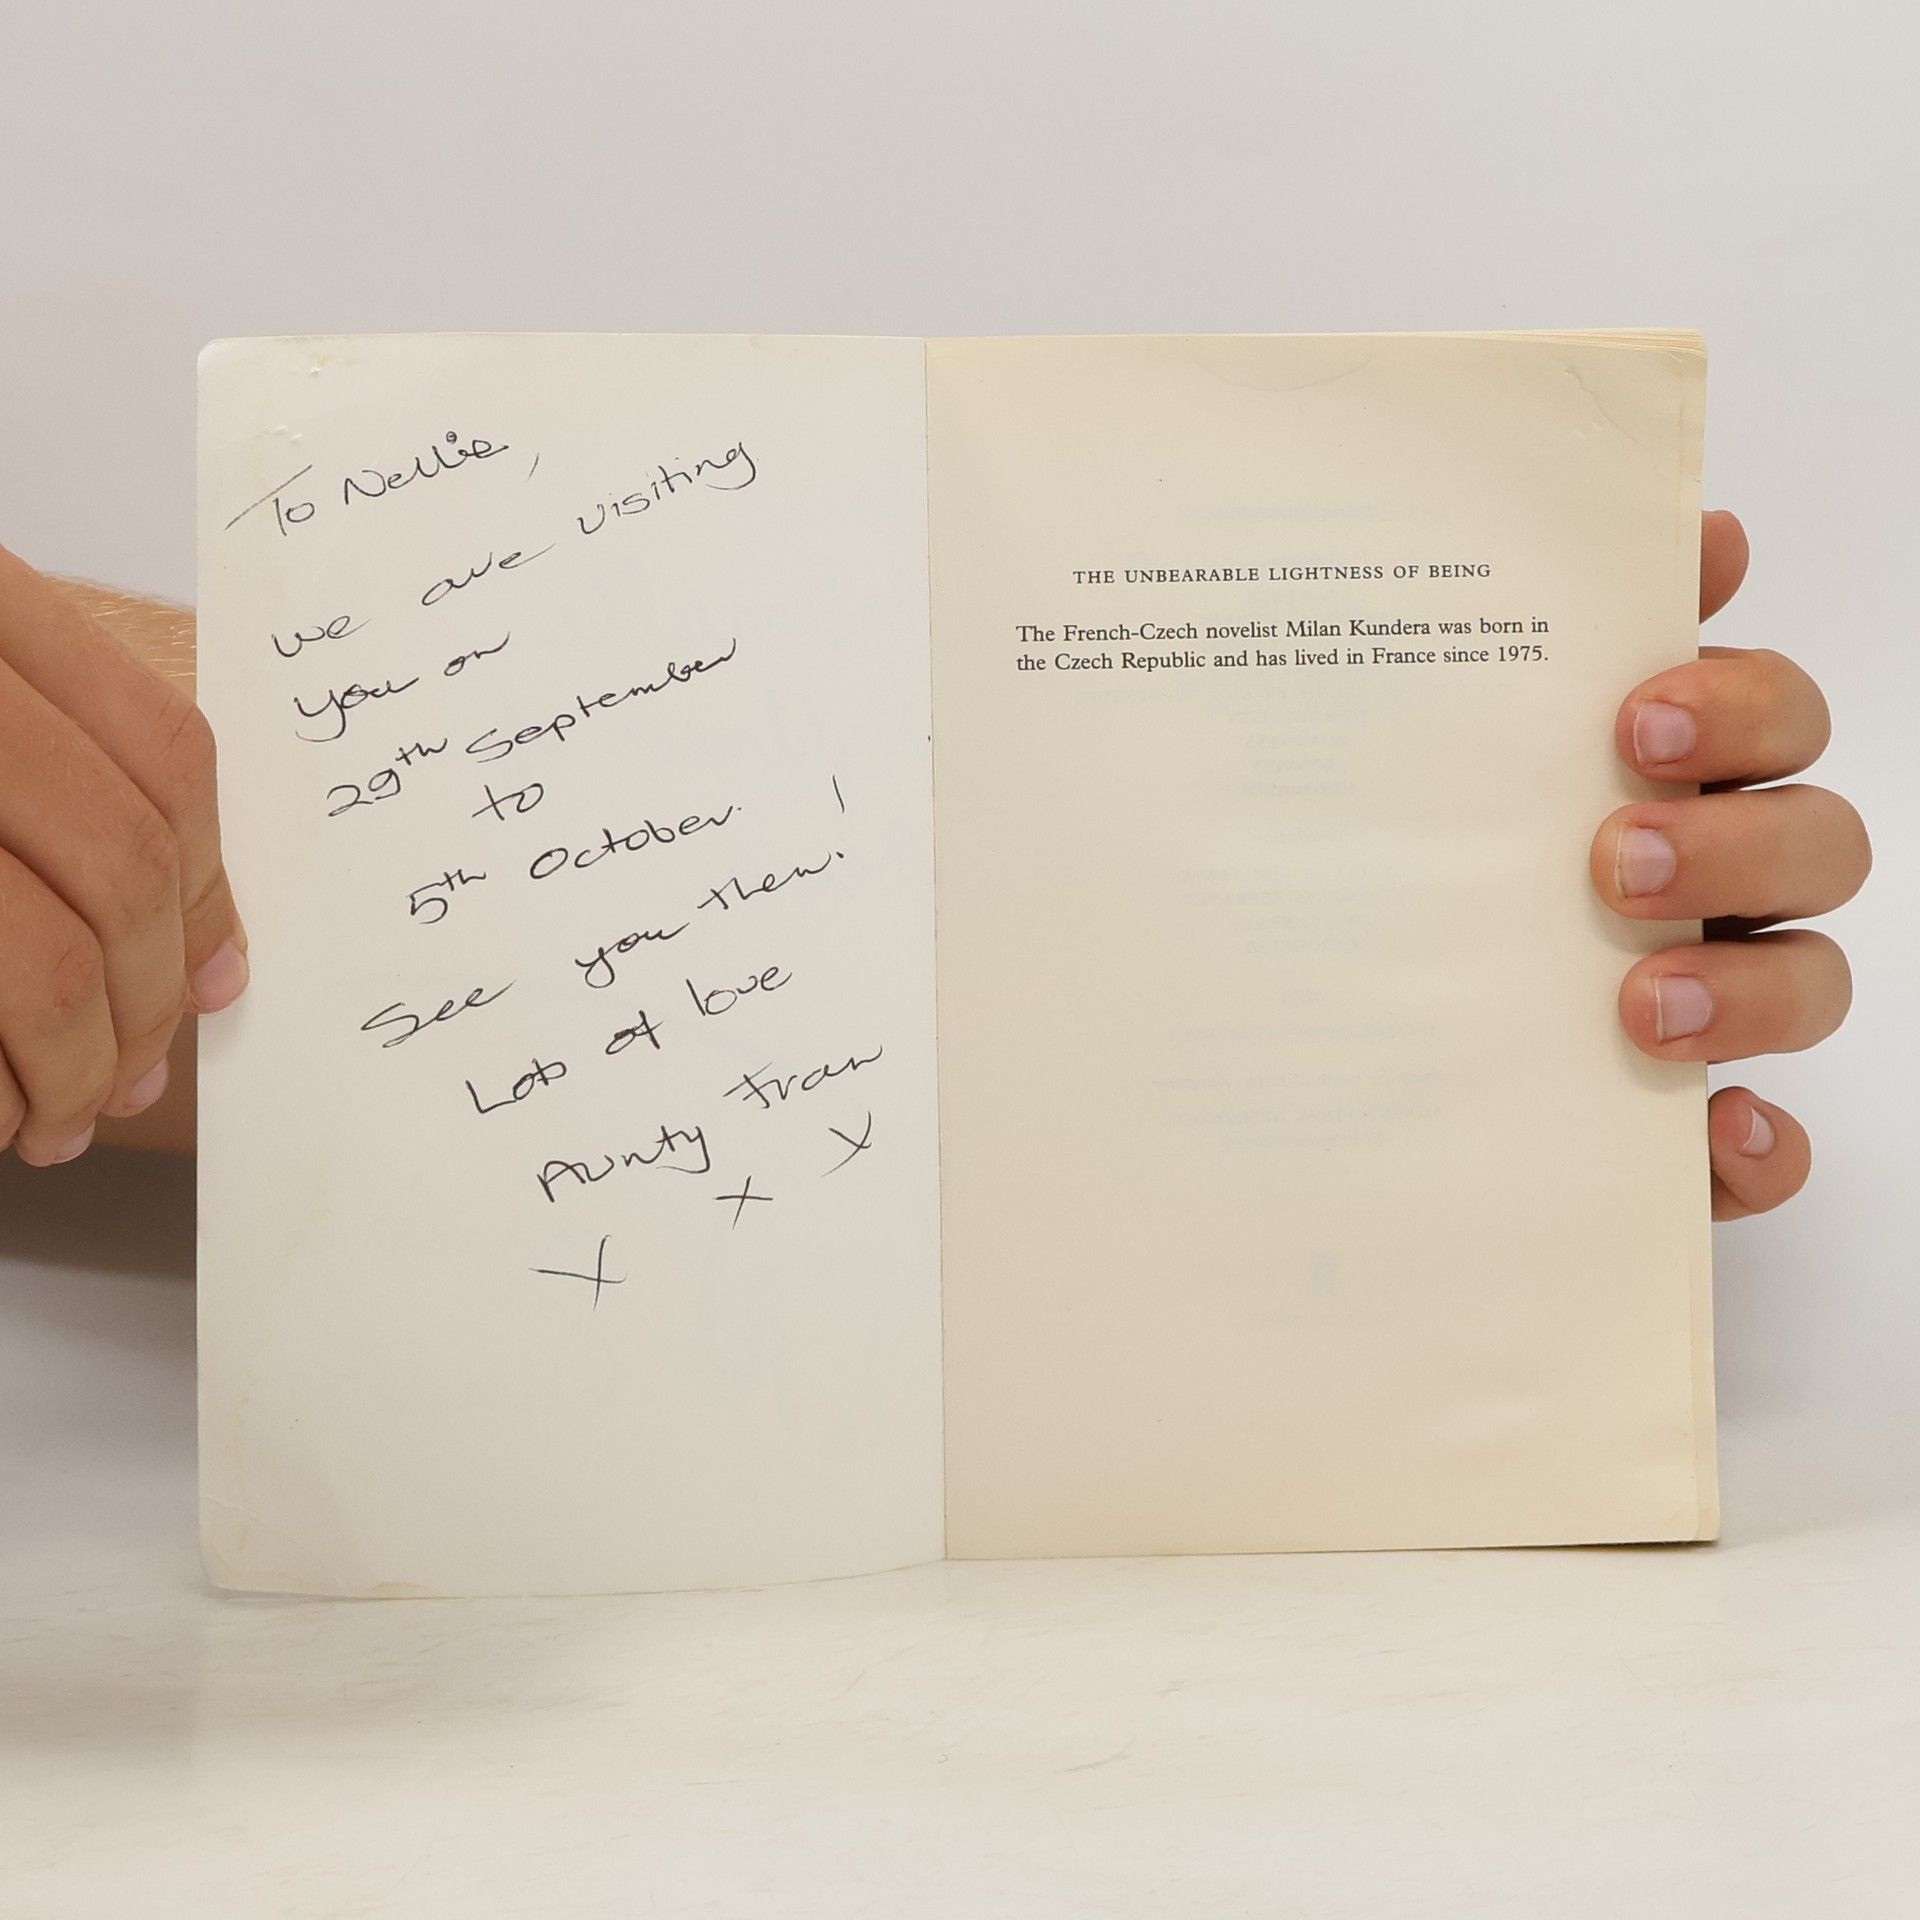 To Nellie,
we are visiting
you on
29th September
to
5th October.
See you then!
Lots of love
Aunty Fran
X X X
THE UNBEARABLE LIGHTNESS OF BEING
The French-Czech novelist Milan Kundera was born in
the Czech Republic and has lived in France since 1975.